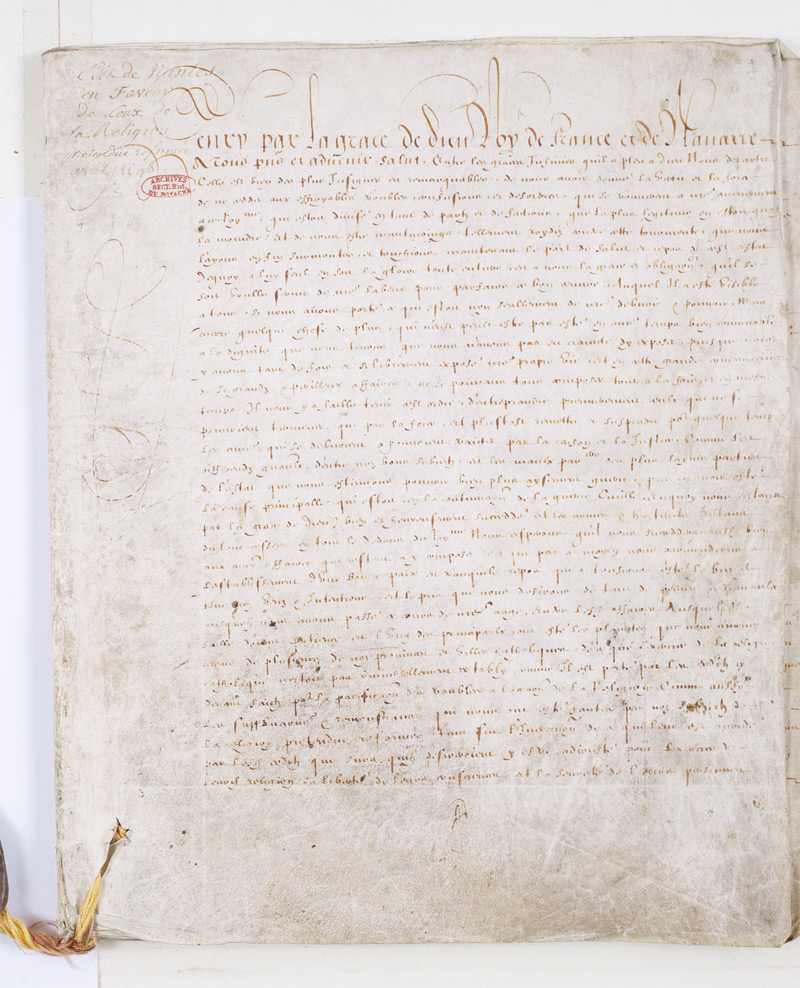 Edit de Nantes
en Faveur
de Ceux de
la Religion
pretendue reformée
avril 1598
ARCHIVES
SECT. HIST.
DU ROYAUME
Henry par la grace de dieu Roy de France et de Navarre
A tous pñs et advenir salut. Entre les graces Infinies qu'il a pleu a dieu Nous departir
Celle est bien des plus Insignes et remarquables, de nous avoir donné la vertu et la force
de ne ceder aux effroyables troubles confusions et desordres, qui se trouverent a nre advenement
a ce Roy.me, qui estoit divisé en tant de partz et de factions, que la plus legitime en estoit quasi
la moindre, et de nous estre neantmoings tellement roydiz contre ceste tourmente, que nous
l'ayons enfin surmontée, et touchions maintenant le port de salut et repos de cest estat
Dequoy a luy seul en soit la gloire toute entiere, et a nous la grace et obligaõn, qu'il se
soit voullu servir de nre labeur pour parfaire ce bon œuvre, Auquel Il a esté visible
a tous, si nous avons porté ce qui estoit non seullement de nre debvoir et pouvoir, Mais
encore quelque chose de plus, qui n'eust peut estre pas esté en autre temps bien convenable
a la dignité que nous tenons, que nous n'avons pas eu craincte d'y exposer, puisque
y avons tant de fois et si librement exposé nre propre vie, et en ceste grande concurrence
de si grandz et perilleux affaires, ne se pouvant tous composer tout a la fois et en mesme
temps Il nous a faillu tenir cest ordre, d'entreprendre premierement ceulx qui ne se
pouvoient terminer que par la force, et plustost remettre et suspendre po.r quelque temps
les autres qui se debvoient et pouvoient traicter par la raison et la Justice, Comme les
differendz generaulx d'entre noz bons subiectz, et les maulx par.ers des plus saynes parties
de l'estat que nous estimions pouvoir bien plus aysement guerir, apres en avoir osté
la cause principalle, qui estoit en la continuaõn de la guerre Civille, en quoy nous estant
par la grace de Dieu bien et heureusement succedé, et les armes et hostilitez estans
du tout cessées en tout le dedans du Roy.me, Nous esperons qu'il nous succedera aussi bien
aux autres affaires qui restent a y composer, et que par ce moyen nous parviendrons a
l'establissement d'une bonne paix et tranquille repos, qui a tousiours esté le but de
tous noz vœuz et Intentions, et le pris que nous desirons de tant de peines et travaulx
ausquelz nous avons passé ce cours de nre aage, Entre lesd. affaires Ausquelz Il
a fallu donner patience, et l'un des principaulx, ont esté les plainctes que nous avons
receues de plusieurs de noz provinces et villes catholiques, de ce que l'exercice de la relig.
catholique n'estoit pas universellement restably comme Il est porté par les edictz cy
devant faictz po.r la pacificaõn des troubles a l'occaõn de la Religion, Comme aussy
les supplicaõns et remonstrances qui nous ont esté faictes par noz subiectz de
la religion pretendue reformée, tant sur l'Inexecution de ce qui leur est accordé
par lesd. edictz que sur ce qu'ilz desireroient y estre adiousté pour l'exercice de
leurd. religion, la liberté de leurs consciences, et la seureté de leurs personnes